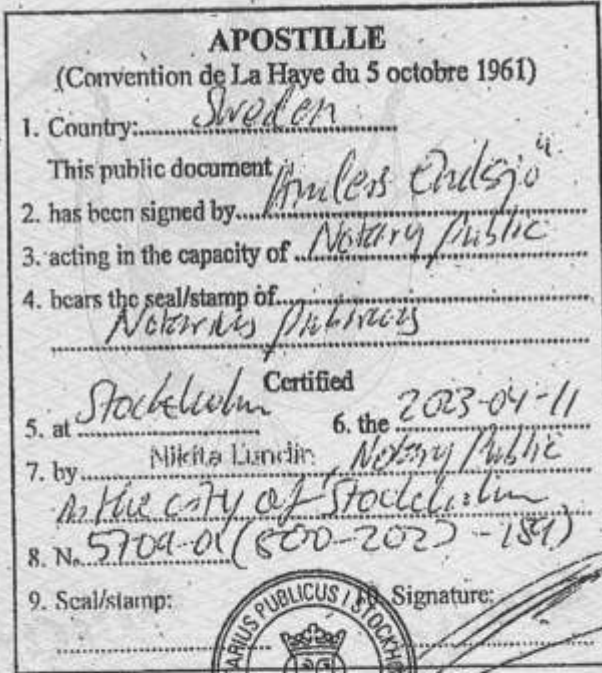 APOSTILLE
(Convention de La Haye du 5 octobre 1961)
1. Country: Sweden
This public document
2. has been signed by Anders Endsjö
3. acting in the capacity of Notary Public
4. bears the seal/stamp of
Notarius Publicus
Certified
5. at Stockholm 6. the 2023-04-11
7. by Nikita Lundin, Notary Public
the city of Stockholm
8. No 5704-
9. Seal/stamp: 10. Signature:
ARIUS PUBLICUS I STOCKHO